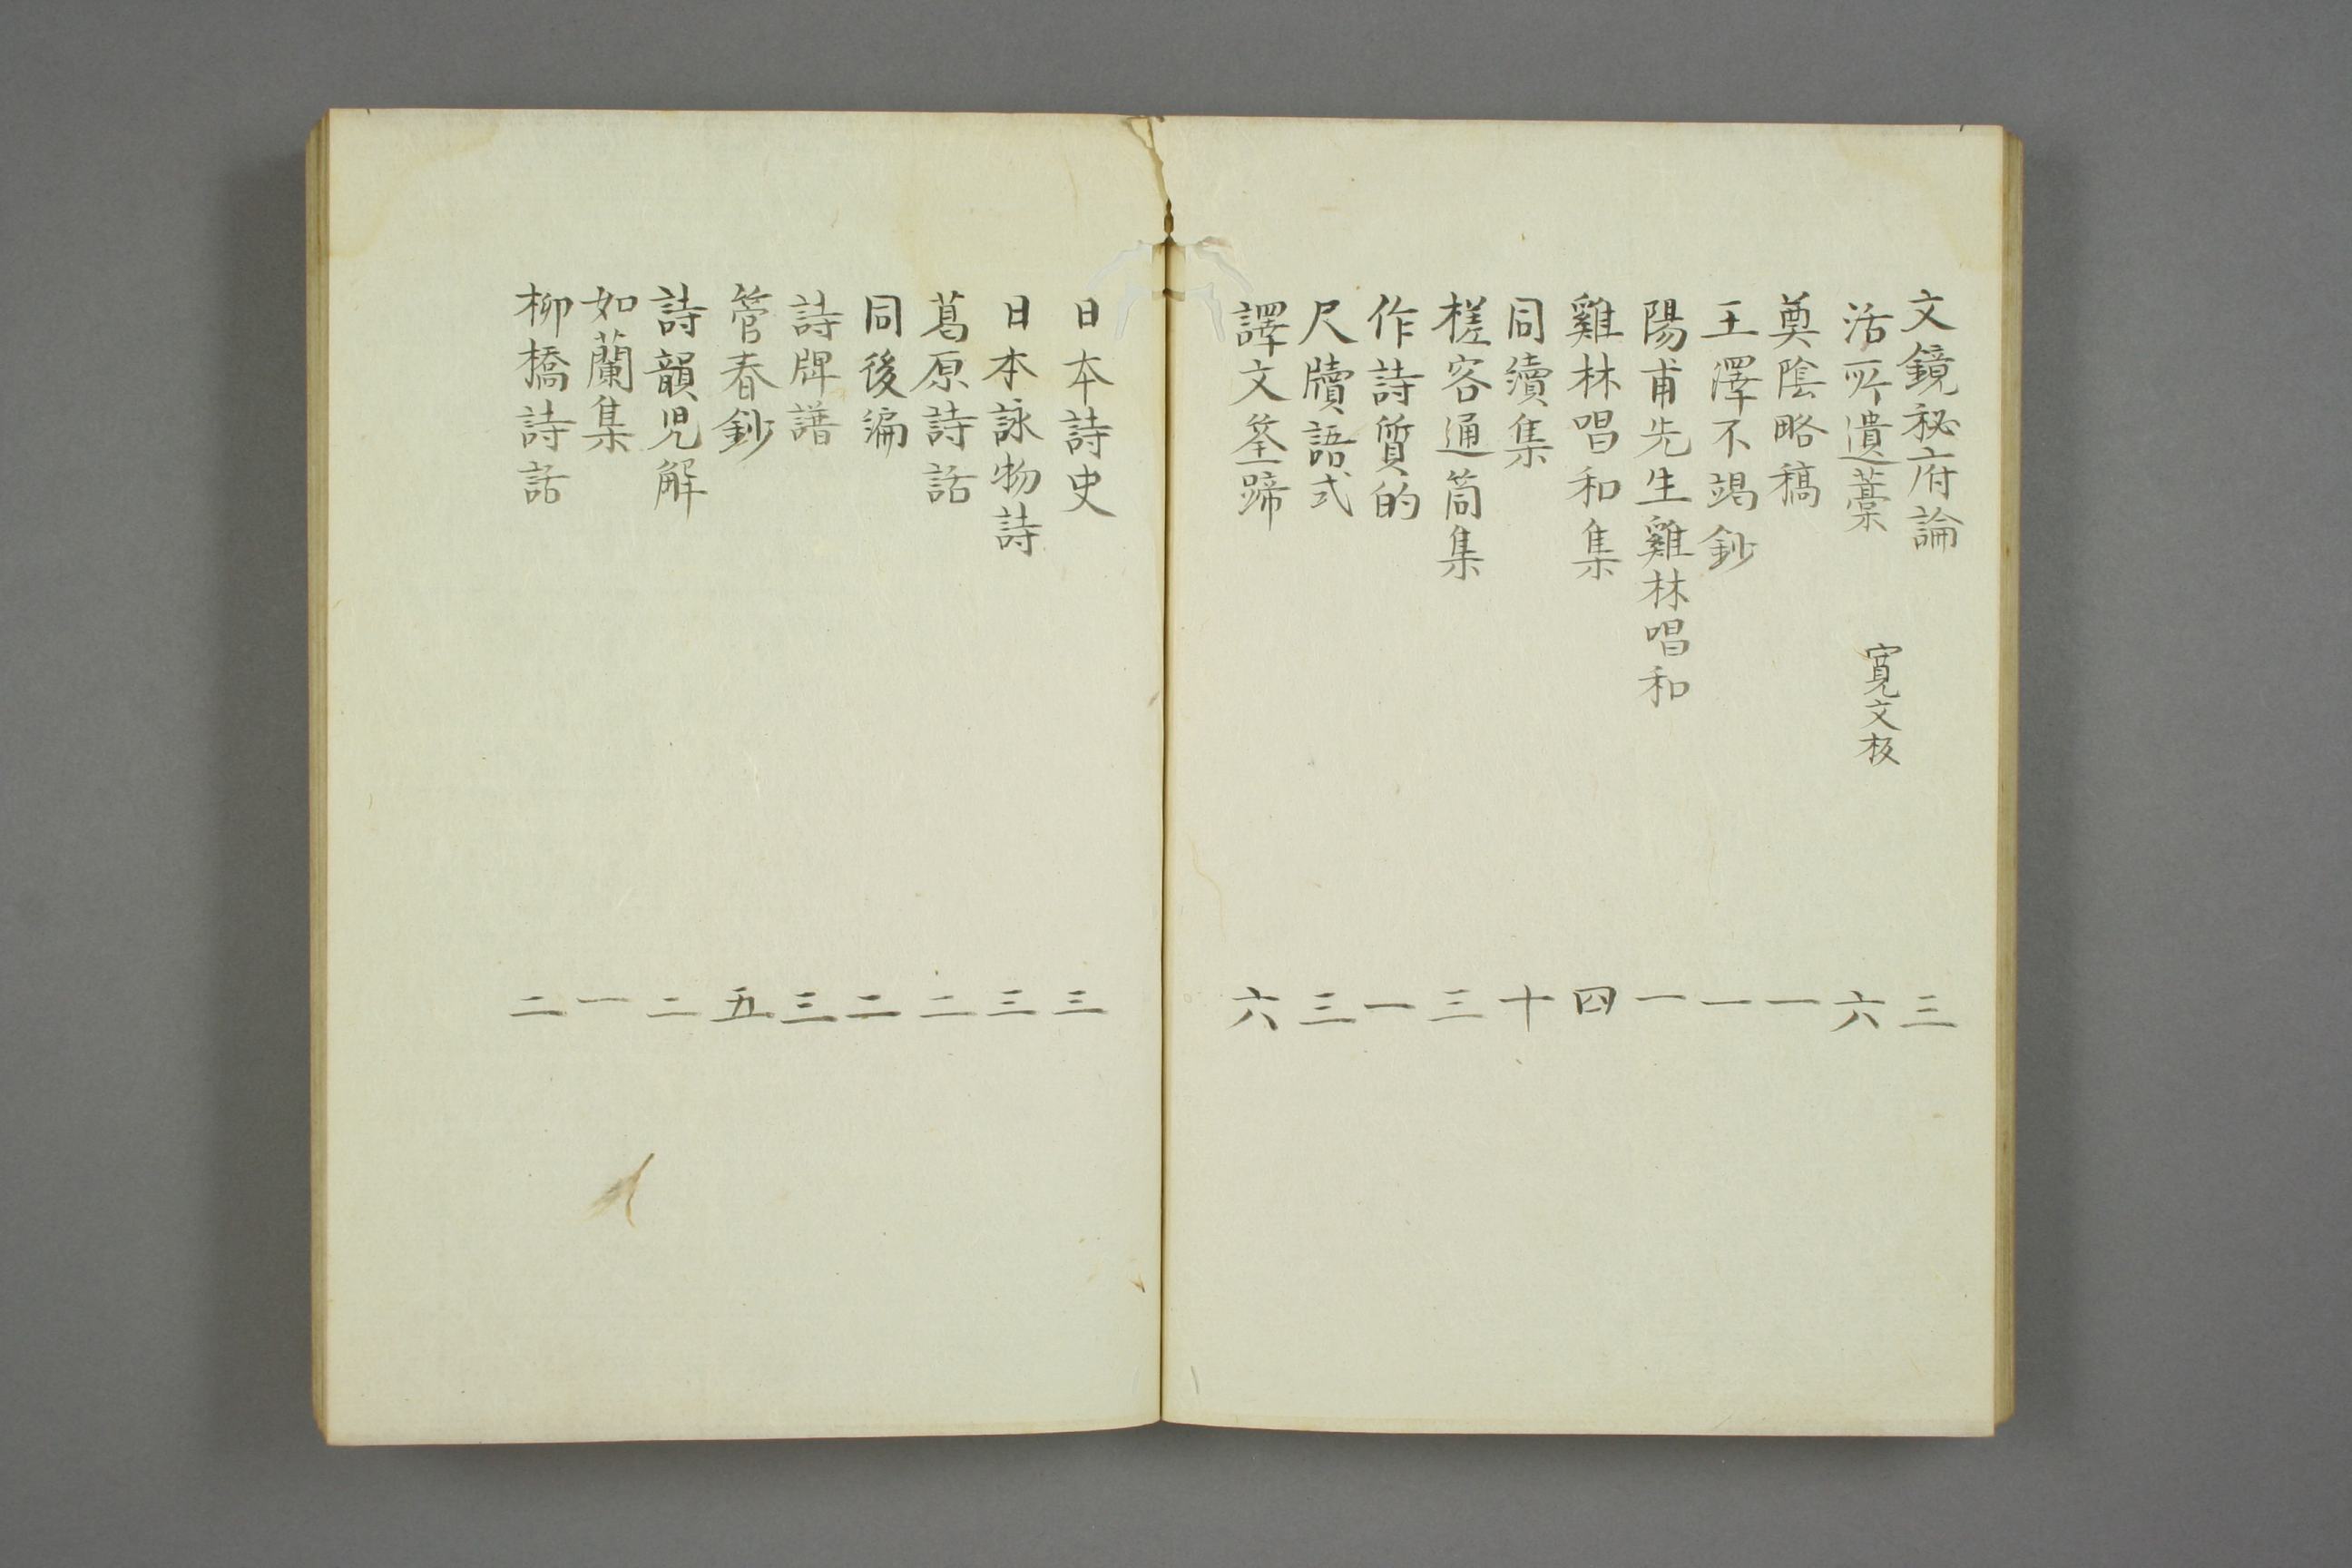 文鏡秘府論 三
活所遺藁 寛文板 六
奠陰略稿 一
王澤不竭鈔 一
陽甫先生雞林唱和 一
雞林唱和集 四
同續集 十
槎客通筒集 三
作詩質的 一
尺牘語式 三
譯文筌蹄 六
日本詩史 三
日本詠物詩 三
葛原詩話 二
同後編 二
詩牌譜 三
管春鈔 五
詩韻児解 二
如蘭集 一
柳橋詩話 二